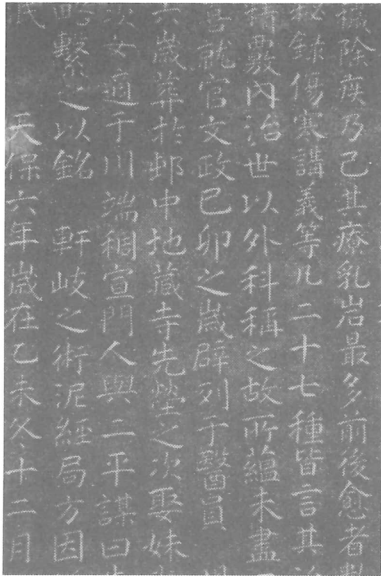 除疾乃已其療乳岩最多前後愈者數
秘錄傷寒講義等凡二十七種皆言其治
精覈內治世以外科稱之故所蘊未盡
善就官文政己卯之歲辟列于醫員
六歲葬於邨中地藏寺先塋之次娶妹
次女適于川端稠宣門人與二平謀曰
略繫之以銘 軒岐之術泥經局方因
民 天保六年歲在乙未冬十二月